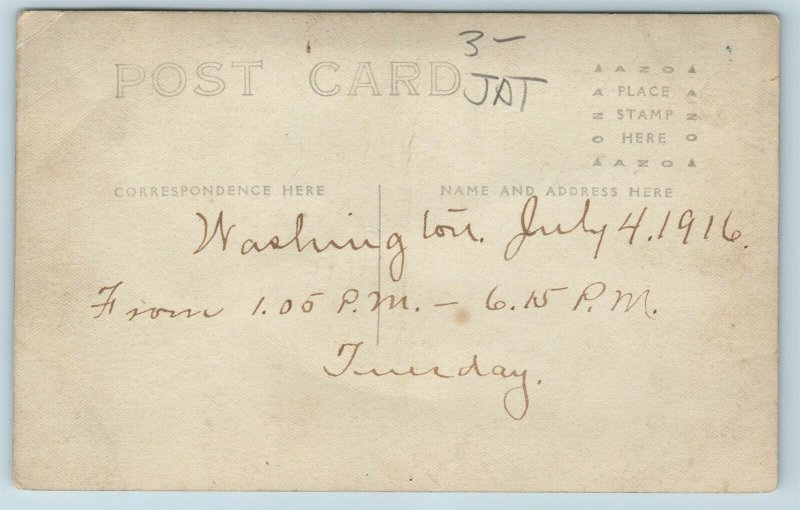 3-
POST CARD
JDT
AZO
PLACE
STAMP
HERE
AZO
CORRESPONDENCE HERE
NAME AND ADDRESS HERE
Washington. July 4. 1916.
From 1.05 P.M. - 6.15 P.M.
Tuesday.